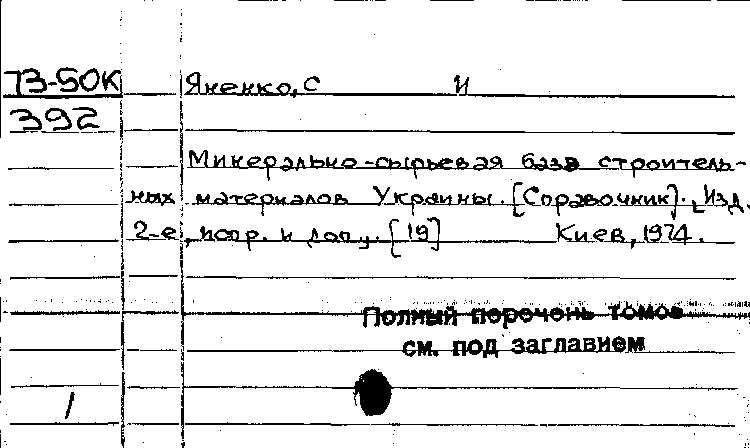 73-50К Яненко, С И
392
Минерально-сырьевая база строитель-
ных материалов Украины. [Справочник]. Изд.
2-е, испр. и доп. [19] Киев, 1974.
Полный перечень томов
см. под заглавием
1